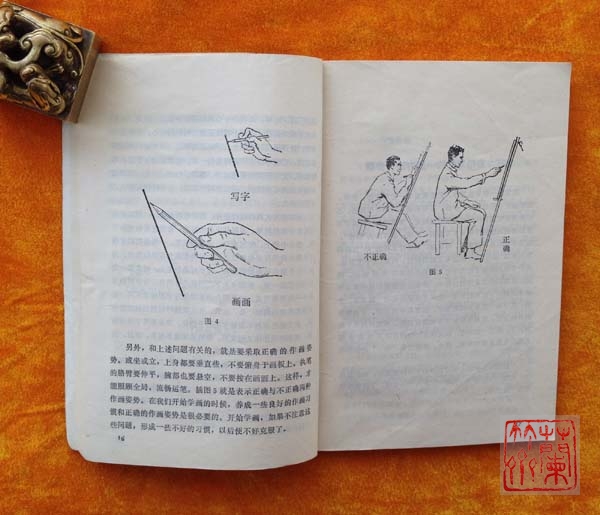 写字
画画
图 4
另外,和上述问题有关的,就是要采取正确的作画姿
势。或坐或立,上身都要垂直些,不要俯身于画板上。执笔
的胳臂要伸平,腕部也要悬空,不要按在画面上。这样,才
能照顾全局,流畅运笔。插图 5 就是表示正确与不正确两种
作画姿势。在我们开始学画的时候,养成一些良好的作画习
惯和正确的作画姿势是很必要的。开始学画,如果不注意这
些问题,形成一些不好的习惯,以后便不好克服了。
16
不正确
正确
图 5